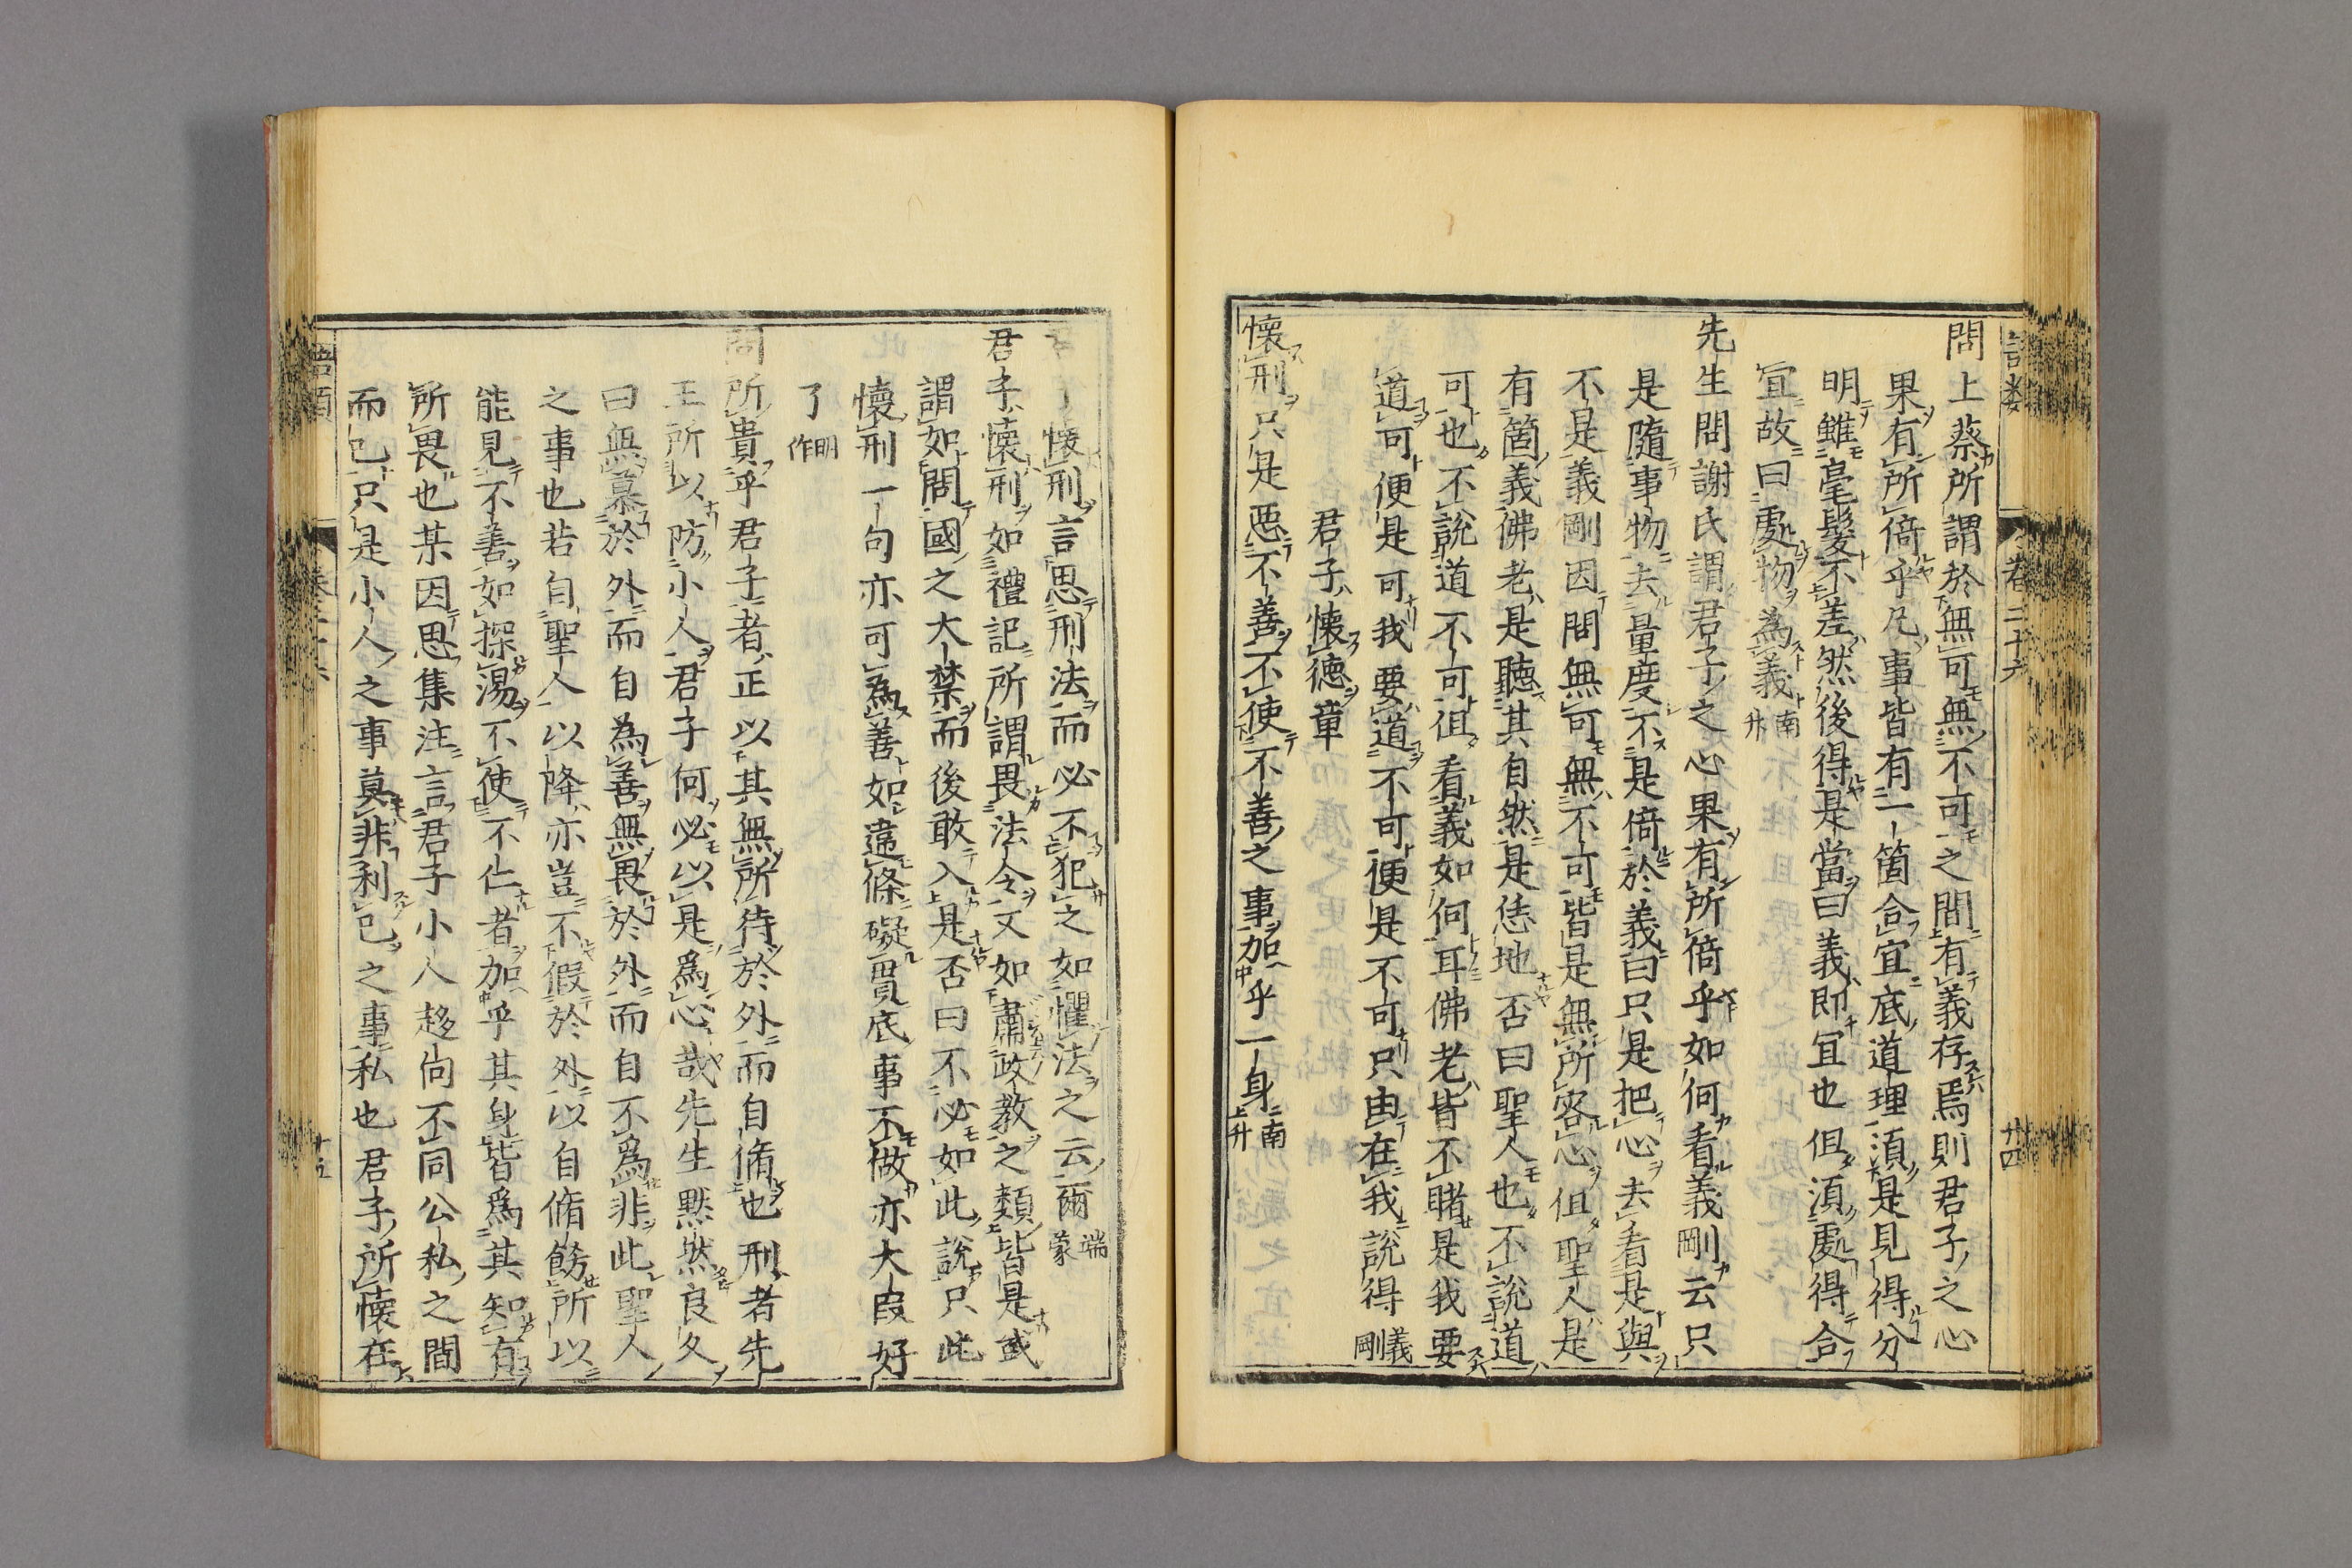 語類
卷二十六
廿四
問上蔡所謂於無可無不可之間有義存焉則君子之心
果有所倚乎凡事皆有一箇合宜底道理須是見得分
明雖毫髮不差然後得是當曰義即宜也但須處得合
宜故曰處物為義南升
先生問謝氏謂君子之心果有所倚乎如何看義剛云只
是隨事物去量度不是倚於義曰只是把心去看是與
不是義剛因問無可無不可皆是無所容心但聖人是
有箇義佛老是聽其自然是恁地否曰聖人也不說道
可也不說道不可但看義如何耳佛老皆不睹是我要
道可便是可我要道不可便是不可只由在我說得義剛
君子懷德章
懷刑只是惡不善不使不善之事加乎一身南升
懷刑言思刑法而必不犯之如懼法之云爾端蒙
君子懷刑如禮記所謂畏法令又如肅政教之類皆是或
謂如問國之大禁而後敢入是否曰不必如此說只此
懷刑一句亦可為善如違條礙貫底事不做亦大段好
了明作
問所貴乎君子者正以其無所待於外而自脩也刑者先
王所以防小人君子何必以是為心哉先生默然良久
曰無慕於外而自為善無畏於外而自不為非此聖人
之事也若自聖人以降亦豈不假於外以自脩飭所以
能見不善如探湯不使不仁者加乎其身皆為其知有
所畏也某因思集注言君子小人趍尚不同公私之間
而已只是小人之事莫非利已之事私也君子所懷在
語類
十五